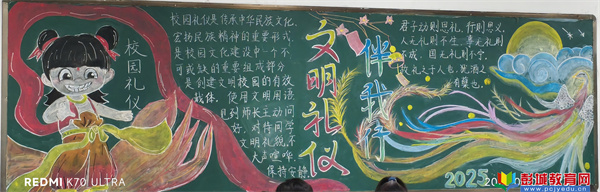 校园礼仪
校园礼仪是传承中华民族文化,
宏扬民族精神的重要形式,
是校园文化建设中一个不
可或缺的重要组成部分
是创建文明校园的有效
载体,使用文明用语
见到师长主动问
好,对待同学
文明礼貌,不
大声喧哗,
保持安静
文明礼仪
伴我行
君子动则思礼,行则思义,
人无礼则不生,事无礼则
不成,国无礼则不宁,
故礼之于人也,犹酒之
有蘖也,
REDMI K70 ULTRA
2025
彭城教育网
www.pcjyedu.cn